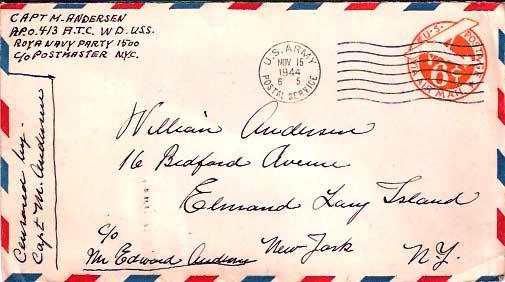 CAPT M. ANDERSEN
A.P.O. 413 A.T.C. W D. U.S.S.
ROYA NAVY PARTY 1500
C/O POSTMASTER NYC.
U.S. ARMY
NOV 15
1944
POSTAL SERVICE
U.S. POSTAGE
6¢
VIA AIR MAIL
Censored by:
Capt M. Andersen
William Andersen
16 Bedford Avenue
Elmand Long Island
New York N.Y.
c/o
Mr Edward Andersen